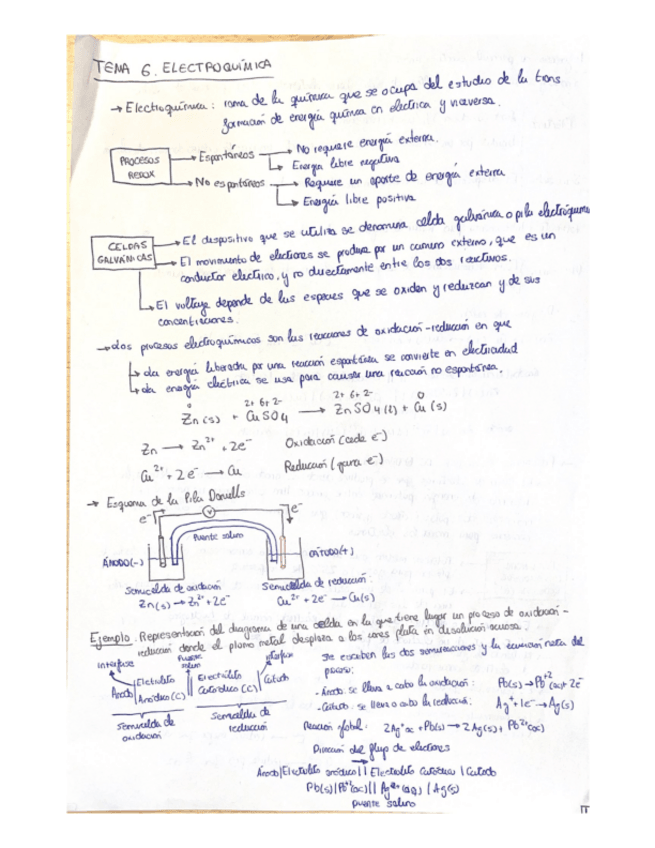 TEMA 6. ELECTROQUÍMICA
→ Electroquímica: rama de la química que se ocupa del estudio de la trans
formación de energía química en electrica y viceversa.
PROCESOS REDOX
→ Espontáneos → No requiere energía externa.
→ Energía libre negativa
→ No espontáneos → Requiere un aporte de energía externa
→ Energía libre positiva
CELDAS GALVÁNICAS
→ El dispositivo que se utiliza se denomina celda galvánica o pila electroquímica
→ El movimiento de electrones se produce por un camino externo, que es un
conductor electrico, y no directamente entre los dos reactivos.
→ El voltaje depende de las especies que se oxiden y reduzcan y de sus
concentraciones.
→ Los procesos electroquímicos son las reacciones de oxidación-reducción en que
→ La energía liberada por una reacción espontánea se convierte en electricidad
→ La energía eléctrica se usa para causar una reacción no espontánea.
0 2+ 6+ 2- 2+ 6+ 2- 0
Zn(s) + CuSO4 → ZnSO4(l) + Cu(s)
Zn → Zn²⁺ + 2e⁻ Oxidación (cede e⁻)
Cu²⁺ + 2e⁻ → Cu Reducción (gana e⁻)
→ Esquema de la Pila Daniells
e⁻ V e⁻
Puente salino
ÁNODO(-) CÁTODO(+)
Semicelda de oxidación Semicelda de reducción:
Zn(s) → Zn²⁺ + 2e⁻ Cu²⁺ + 2e⁻ → Cu(s)
Ejemplo. Representación del diagrama de una celda en la que tiene lugar un proceso de oxidación-
reducción donde el plomo metal desplaza a los iones plata en disolución acuosa.
Interfase Puente salino interfase
Ánodo | Electrolito Anódico (C) || Electrolito Catódico (C) | Cátodo
Semicelda de oxidación Semicelda de reducción
Se escriben las dos semireacciones y la ecuación neta del
proceso:
- Ánodo. se lleva a cabo la oxidación: Pb(s) → Pb⁺² (ac) + 2e⁻
- Cátodo. se lleva a cabo la reducción: Ag⁺ + 1e⁻ → Ag(s)
Reacción global: 2Ag⁺ac + Pb(s) → 2Ag(s) + Pb²⁺(ac)
Dirección del flujo de electrones
→
Ánodo | Electrolito anódico || Electrolito Catódico | Cátodo
Pb(s) | Pb⁺²(ac) || Ag⁺ (aq) | Ag(s)
puente salino